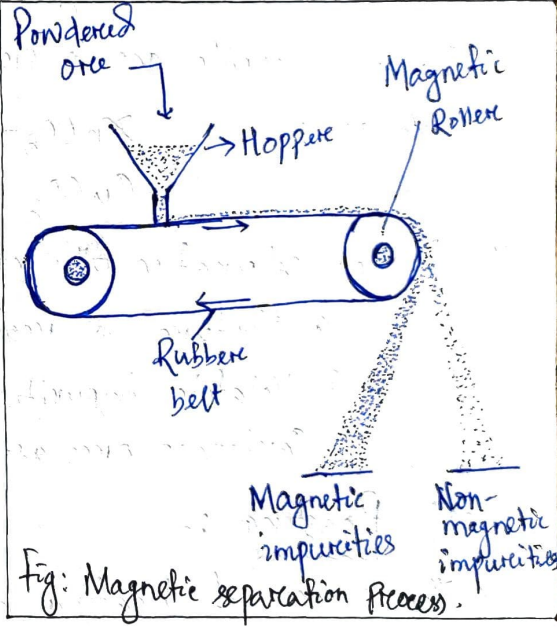 Powdered
ore
Hopper
Magnetic
Roller
Rubber
belt
Magnetic
impurities
Non-
magnetic
impurities
Fig: Magnetic separation Process.